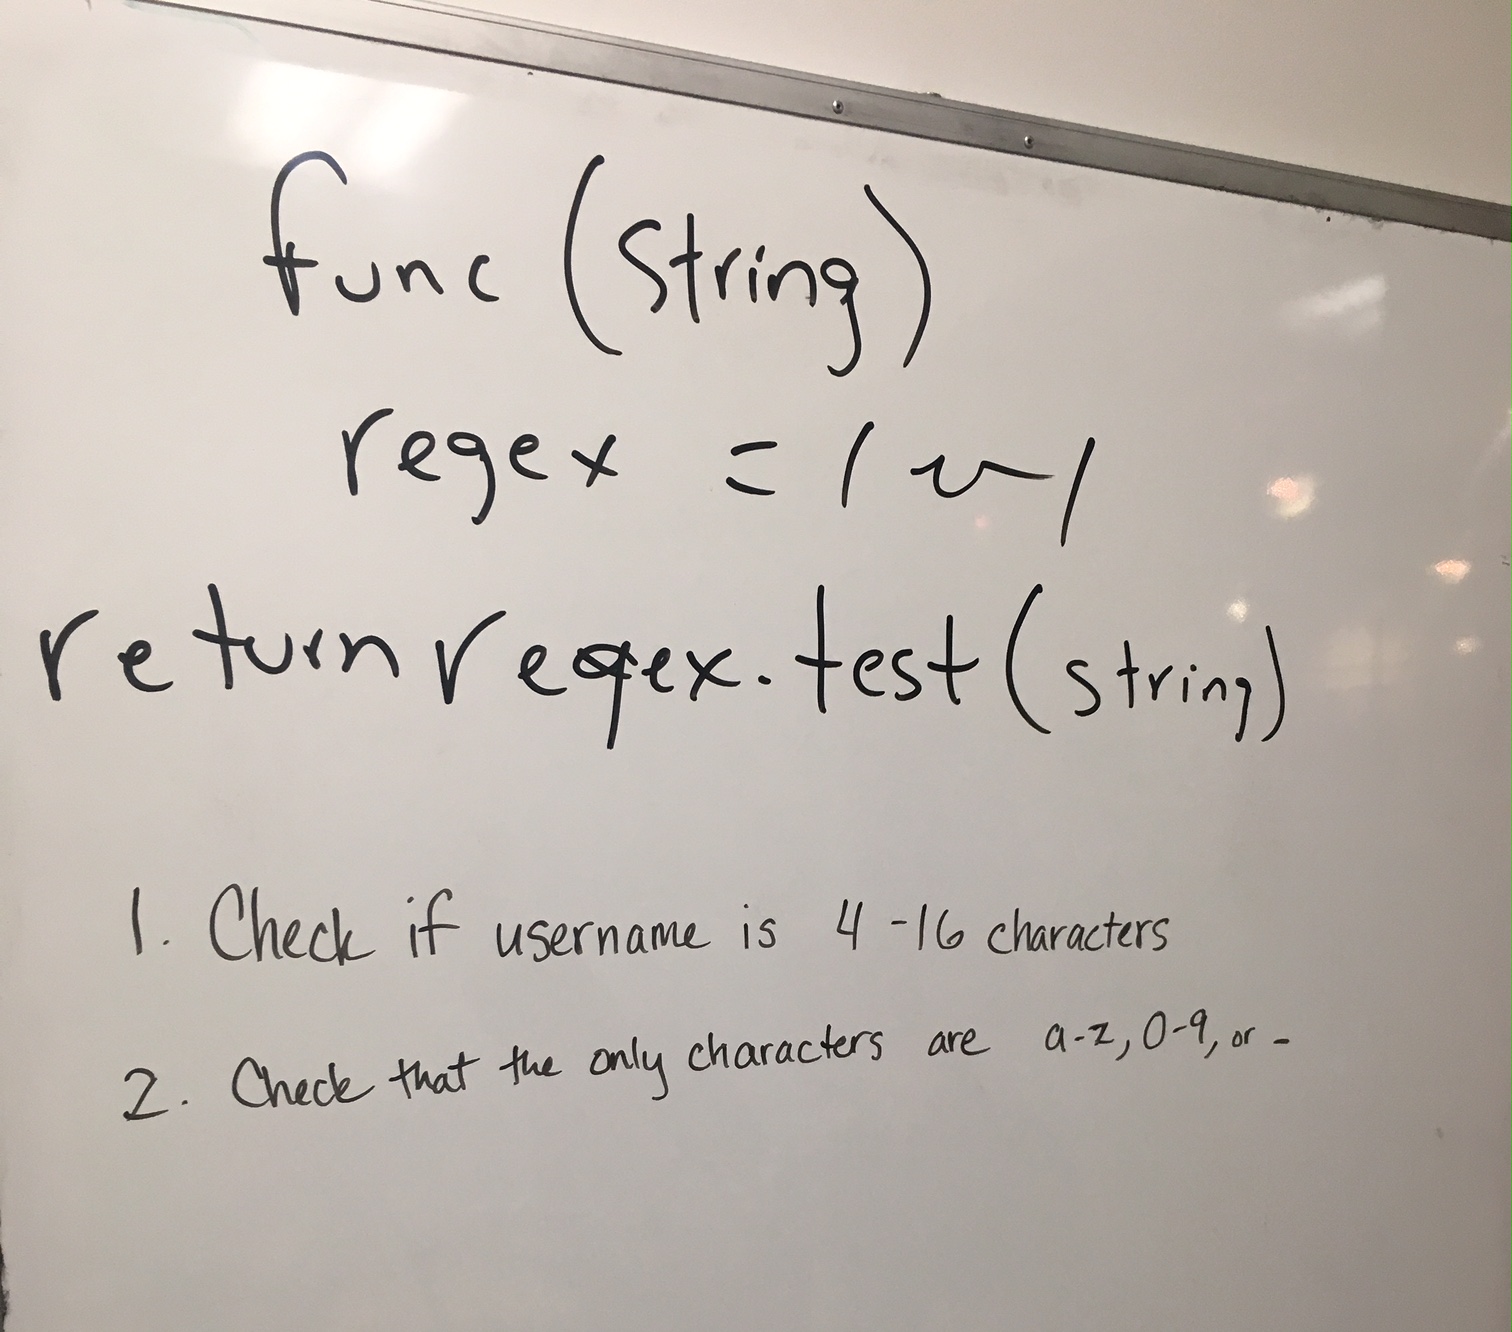 func (string)
regex = / ~ /
return regex.test(string)
1. Check if username is 4-16 characters
2. Check that the only characters are a-z, 0-9, or -